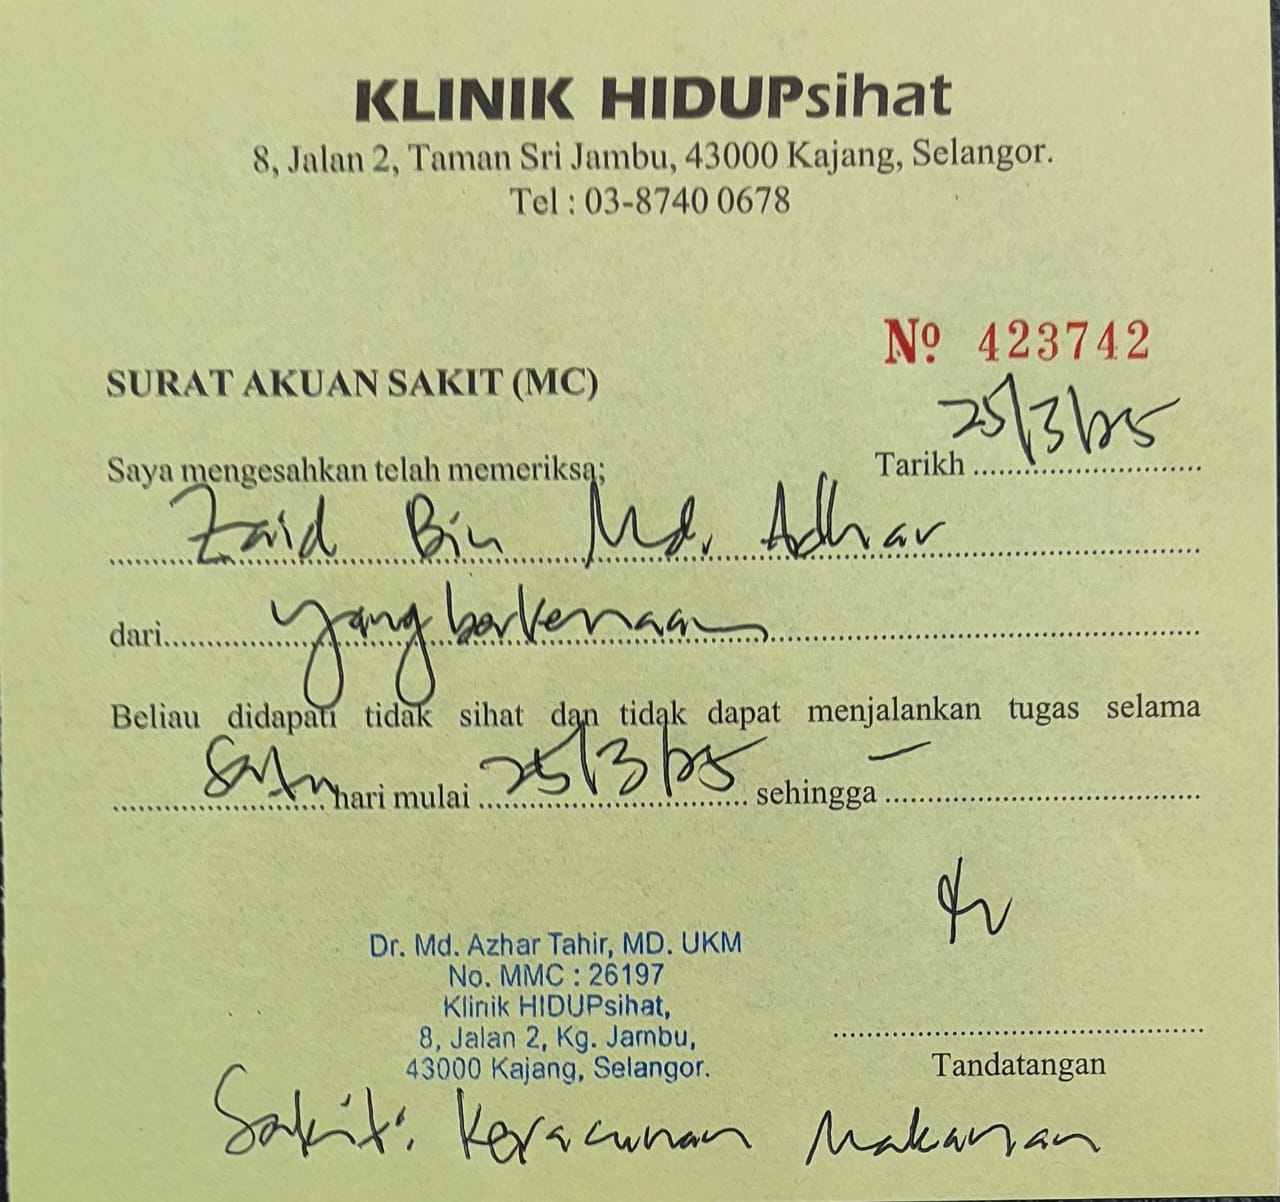 KLINIK HIDUPsihat
8, Jalan 2, Taman Sri Jambu, 43000 Kajang, Selangor.
Tel : 03-8740 0678
Nº 423742
SURAT AKUAN SAKIT (MC)
Tarikh 25/3/25
Saya mengesahkan telah memeriksa;
Zaid Bin Md. Adhar
dari yang berkenaan
Beliau didapati tidak sihat dan tidak dapat menjalankan tugas selama
Satu hari mulai 25/3/25 sehingga —
Dr. Md. Azhar Tahir, MD. UKM
No. MMC : 26197
Klinik HIDUPsihat,
8, Jalan 2, Kg. Jambu,
43000 Kajang, Selangor.
Tandatangan
Sakit: Keracunan Makanan